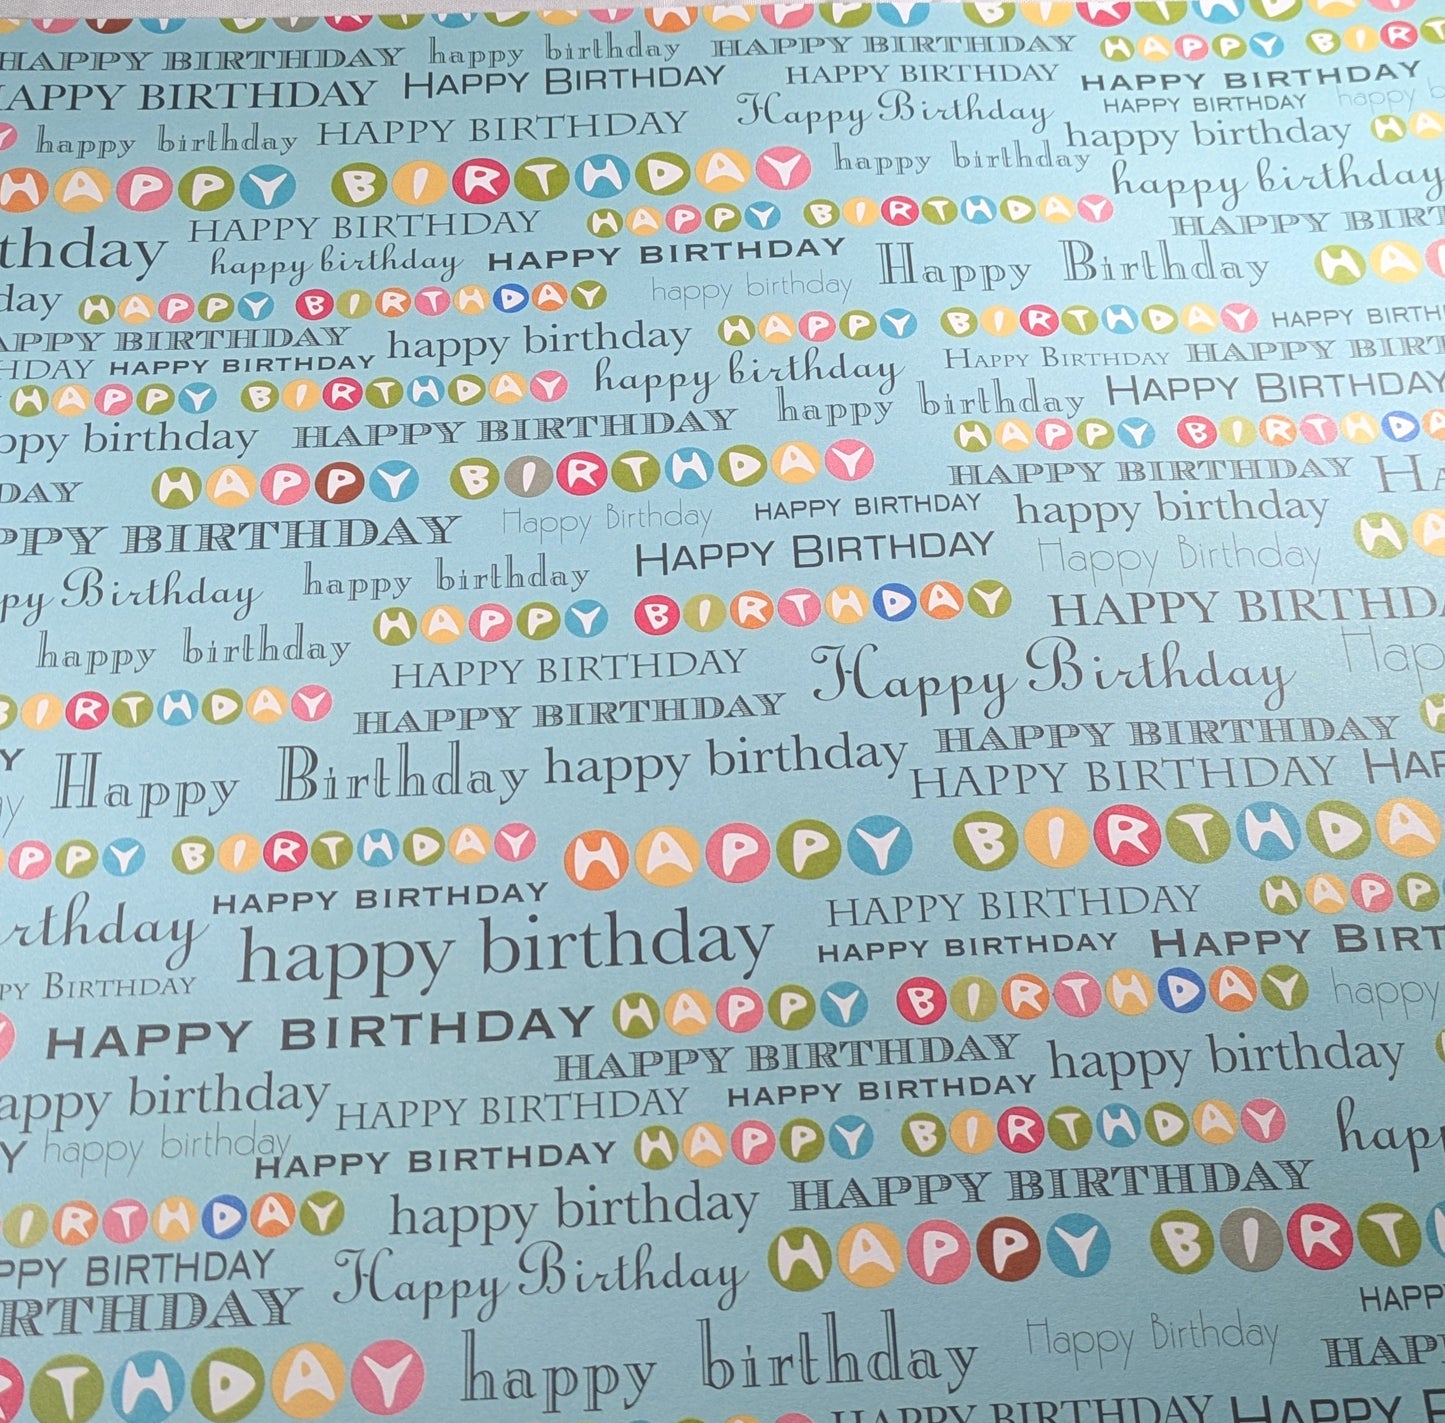 HAPPY BIRTHDAY happy birthday HAPPY BIRTHDAY HAPPY BIRT
HAPPY BIRTHDAY HAPPY BIRTHDAY HAPPY BIRTHDAY HAPPY BIRTHDAY
HAPPY BIRTHDAY happy b
happy birthday HAPPY BIRTHDAY Happy Birthday happy birthday HA
HAPPY BIRTHDAY happy birthday happy birthday
HAPPY BIRTHDAY HAPPY BIRTHDAY HAPPY BIRT
thday happy birthday HAPPY BIRTHDAY Happy Birthday HA
day HAPPY BIRTHDAY happy birthday
APPY BIRTHDAY happy birthday HAPPY BIRTHDAY HAPPY BIRTH
HDAY HAPPY BIRTHDAY happy birthday HAPPY BIRTHDAY HAPPY BIRT
HAPPY BIRTHDAY happy birthday HAPPY BIRTHDAY
ppy birthday HAPPY BIRTHDAY HAPPY BIRTHDA
DAY HAPPY BIRTHDAY HAPPY BIRTHDAY HA
PPY BIRTHDAY Happy Birthday HAPPY BIRTHDAY happy birthday HA
py Birthday happy birthday HAPPY BIRTHDAY Happy Birthday
HAPPY BIRTHDAY HAPPY BIRTHDA
happy birthday HAPPY BIRTHDAY Happy Birthday Hap
BIRTHDAY HAPPY BIRTHDAY
Y Happy Birthday happy birthday HAPPY BIRTHDAY
y HAPPY BIRTHDAY HAP
PPY BIRTHDAY HAPPY BIRTHDA
rthday HAPPY BIRTHDAY HAPPY BIRTHDAY HAPP
happy birthday HAPPY BIRTHDAY HAPPY BIRT
PY BIRTHDAY HAPPY BIRTHDAY happy
HAPPY BIRTHDAY
HAPPY BIRTHDAY happy birthday
appy birthday HAPPY BIRTHDAY HAPPY BIRTHDAY
Y happy birthday HAPPY BIRTHDAY HAPPY BIRTHDAY hap
IRTHDAY happy birthday HAPPY BIRTHDAY
PPY BIRTHDAY Happy Birthday HAPPY BIRT
RTHDAY HAPP
THDAY happy birthday Happy Birthday HAP
HAPPY BIRTHDAY